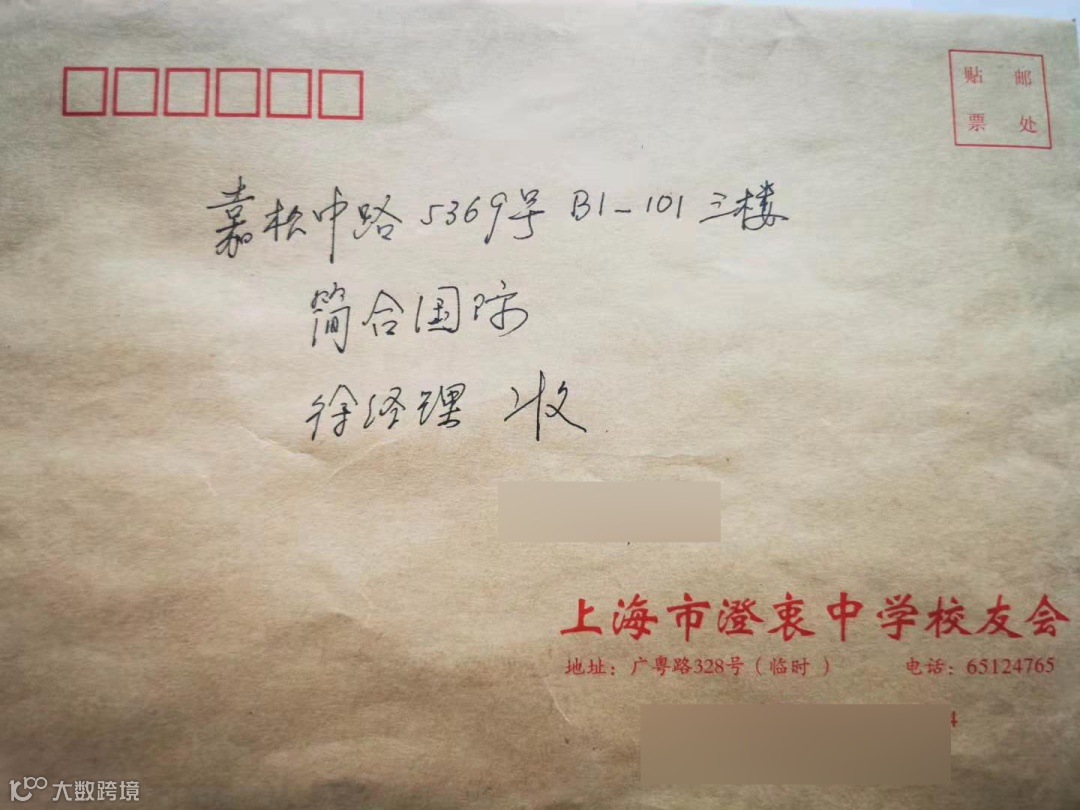 贴 邮
票 处
嘉松中路5369号 B1-101 三楼
简合国际
徐经理 收
上海市澄衷中学校友会
地址：广粤路328号（临时） 电话：65124765
4
大数跨境